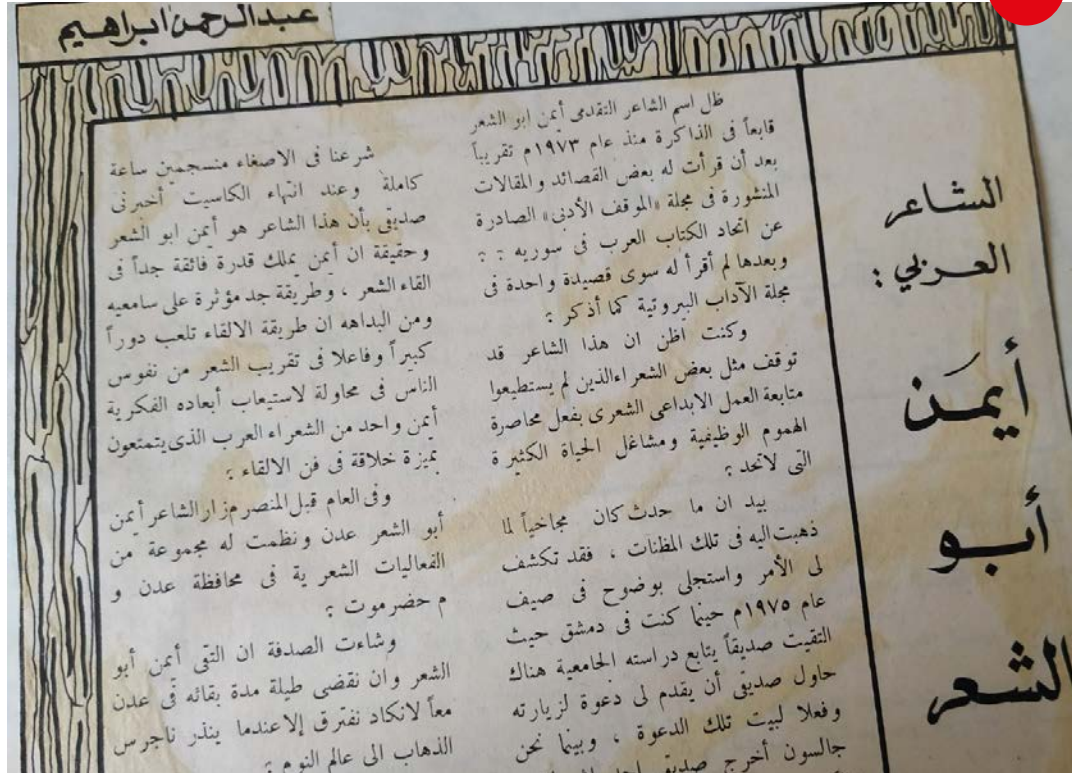 عبدالرحمن ابراهيم
الشاعر
العربي :
أيمن
أبو
الشعر
ظل اسم الشاعر التقدمى أيمن ابو الشعر
قابعاً فى الذاكرة منذ عام ١٩٧٣م تقريباً
بعد أن قرأت له بعض القصائد والمقالات
المنشورة فى مجلة «الموقف الأدبى» الصادرة
عن اتحاد الكتاب العرب فى سوريه ؛ ؛
وبعدها لم أقرأ له سوى قصيدة واحدة فى
مجلة الآداب البروتية كما أذكر ؛
وكنت اظن ان هذا الشاعر قد
توقف مثل بعض الشعراء الذين لم يستطيعوا
متابعة العمل الابداعى الشعرى بفعل محاصرة
الهموم الوظيفية ومشاغل الحياة الكثيرة
التى لاتحد ؛
بيد ان ما حدث كان مجاخياً لما
ذهبت اليه فى تلك المظنات ، فقد تكشف
لى الأمر واستجلى بوضوح فى صيف
عام ١٩٧٥م حينما كنت فى دمشق حيث
التقيت صديقاً يتابع دراسته الجامعية هناك
حاول صديقى أن يقدم لى دعوة لزيارته
وفعلا لبيت تلك الدعوة ، وبينما نحن
جالسون أخرج صديقى
شرعنا فى الاصغاء منسجمين ساعة
كاملة وعند انتهاء الكاسيت أخبرنى
صديقى بأن هذا الشاعر هو أيمن ابو الشعر
وحقيقة ان أيمن يملك قدرة فائقة جداً فى
القاء الشعر ، وطريقة جد مؤثرة على سامعيه
ومن البداهه ان طريقة الالقاء تلعب دوراً
كبيراً وفاعلا فى تقريب الشعر من نفوس
الناس فى محاولة لاستيعاب أبعاده الفكرية
أيمن واحد من الشعراء العرب الذى يتمتعون
بميزة خلاقة فى فن الالقاء ؛
وفى العام قبل المنصرم زار الشاعر أيمن
أبو الشعر عدن ونظمت له مجموعة من
الفعاليات الشعرية فى محافظة عدن و
م حضرموت ؛
وشاءت الصدفة ان التقى أيمن أبو
الشعر وان نقضى طيلة مدة بقائه فى عدن
معاً لانكاد نفترق إلا عندما ينذر ناجرس
الذهاب الى عالم النوم ؛